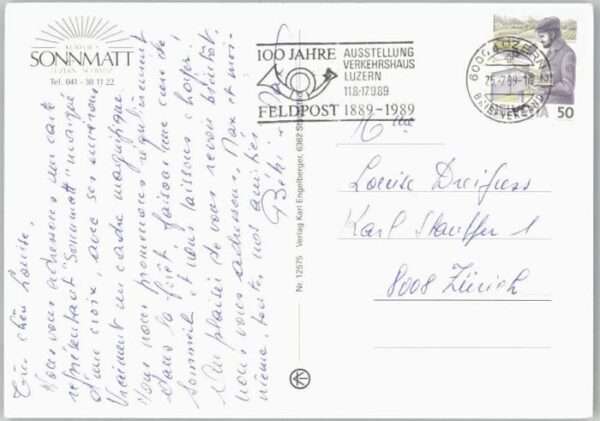 KURHOTEL
SONNMATT
LUZERN · SCHWEIZ
Tel. 041 - 30 11 22
Très chère Louise,
Nous vous adressons une carte
représentant "Sonnmatt" marqué
d'une croix, avec ses environs
Vraiment un cadre magnifique
Nous nous promenons régulièrement
dans la forêt, faisons une cure de
sommeil et nous laissons choyer!
Au plaisir de vous revoir bientôt,
nous vous adressons, Max et moi-
même, toutes nos amitiés
Nr. 12575 Verlag Karl Engelberger, 6362 Stansstad
100 JAHRE
FELDPOST 1889-1989
AUSSTELLUNG
VERKEHRSHAUS
LUZERN
11.8-17.9.89
6000 LUZERN
BRIEFVERSAND
50
Mme
Louise Dreifuss
Karl Stauffer 1
8008 Zürich